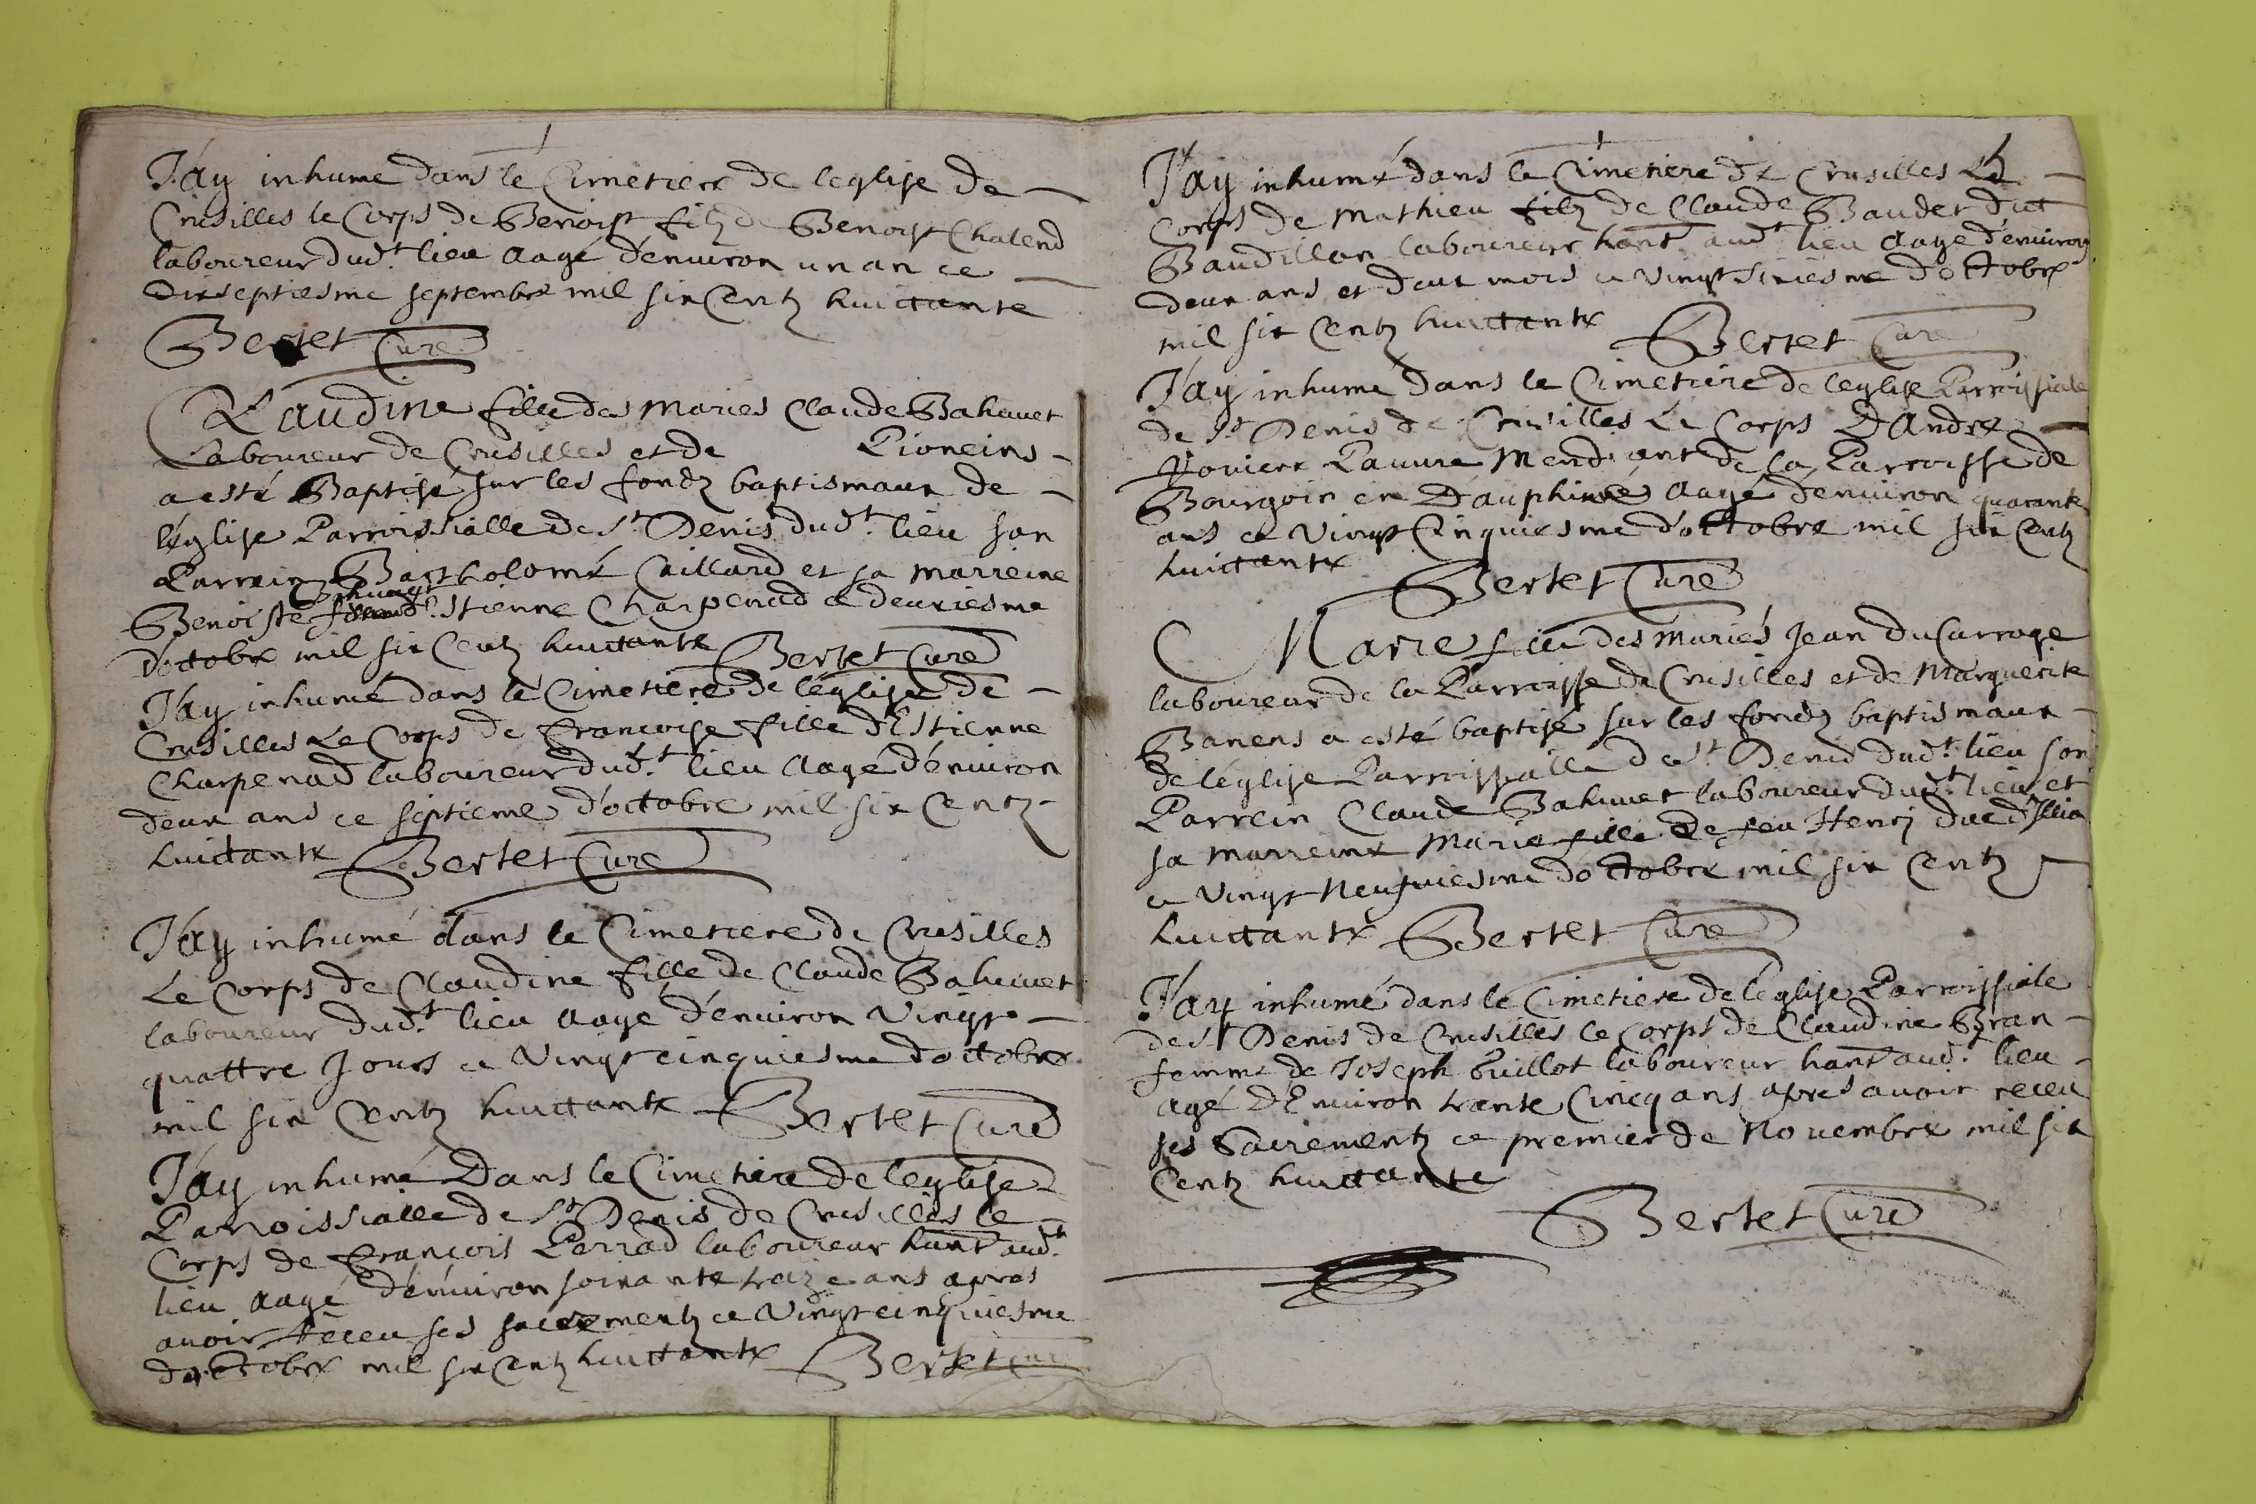 J'ay inhumé dans le Cimetiere de leglise de
Crusilles le Corps de Benoist filz de Benoist Chalend
laboureur dud.t lieu aagé d'enuiron un an ce
dixseptiesme septembre mil six Centz huictante
Bertet Curé
Claudine fille des mariés Claude Bahuuet
Laboureur de Crusilles et de Pioneins
a esté Baptisé sur les fondz baptismaux de
l'église Parroissialle de St Denis dud.t lieu son
Parrein Bartholomé Caillard et sa marreine
Benoiste Estienne Charpenad ce deuxiesme
d'octobre mil six Centz huictante Bertet Curé
J'ay inhumé dans le Cimetiere de l'église de
Crusilles Le Corps de francoise fille d'Estienne
Charpenad laboureur dud.t lieu aagé d'enuiron
deux ans ce septieme d'octobre mil six Centz
huictante Bertet Curé
J'ay inhumé dans le Cimetiere de Crusilles
Le Corps de Claudine fille de Claude Bahuuet
laboureur dud.t lieu aage d'enuiron Vingt
quattre Jours ce Vingtcinquiesme d'octobre
mil six Centz huictante Bertet Curé
J'ay inhumé Dans le Cimetiere de l'eglise
Parroissialle de St Denis de Crusilles le
Corps de François Perrad laboureur hant aud.t
lieu aagé d'enuiron soixante traize ans apres
auoir Receu ses sacrementz ce Vingtcinquiesme
d'octobre mil six Centz huictante Bertet Curé
J'ay inhumé dans le Cimetiere de Crusilles Le
Corps de Mathieu filz de Claude Baudet dict
Baudillon laboureur hant aud.t lieu aagé d'enuiron
deux ans et deux mois ce vingt sixiesme d'octobre
mil six Centz huictante Bertet Curé
J'ay inhumé dans le Cimetiere de l'eglise Parroissiale
de St Denis de Crusilles Le Corps D'Andre
Pauure Mendiant de la Parroisse de
Bourgoin en Dauphiné aagé d'enuiron quarante
ans ce Vingt Cinquiesme d'octobre mil six Centz
huictante Bertet Curé
Marie fille des mariés Jean du Carroge
laboureur de la Parroisse de Crusilles et de Marguerite
Banens a esté baptisé sur les fondz baptismaux
de l'église Parroissialle de St Denis dud.t lieu son
Parrein Claude Bahuuet laboureur dud.t lieu et
sa marreine Marie fille de feu Henri
ce Vingt Neufuiesme d'octobre mil six Centz
huictante Bertet Curé
J'ay inhumé dans le Cimetiere de l'église Parroissiale
de St Denis de Crusilles le Corps de Claudine Bran
femme de Joseph Puillot laboureur hant aud.t lieu
agé d'Enuiron trante Cincq ans apres auoir receu
ses Sacrementz ce premier de Nouembre mil six
Centz huictante
Bertet Curé